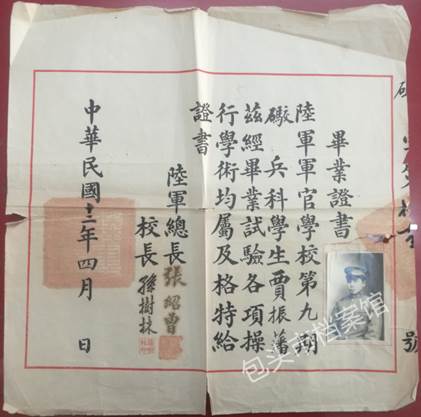 號
畢業證書
陸軍軍官學校第九期
礮兵科學生賈振藩
茲經畢業試驗各項操
行學術均屬及格特給
證書
陸軍總長張紹曾
校長孫樹林
中華民國十二年四月 日
包头市档案馆